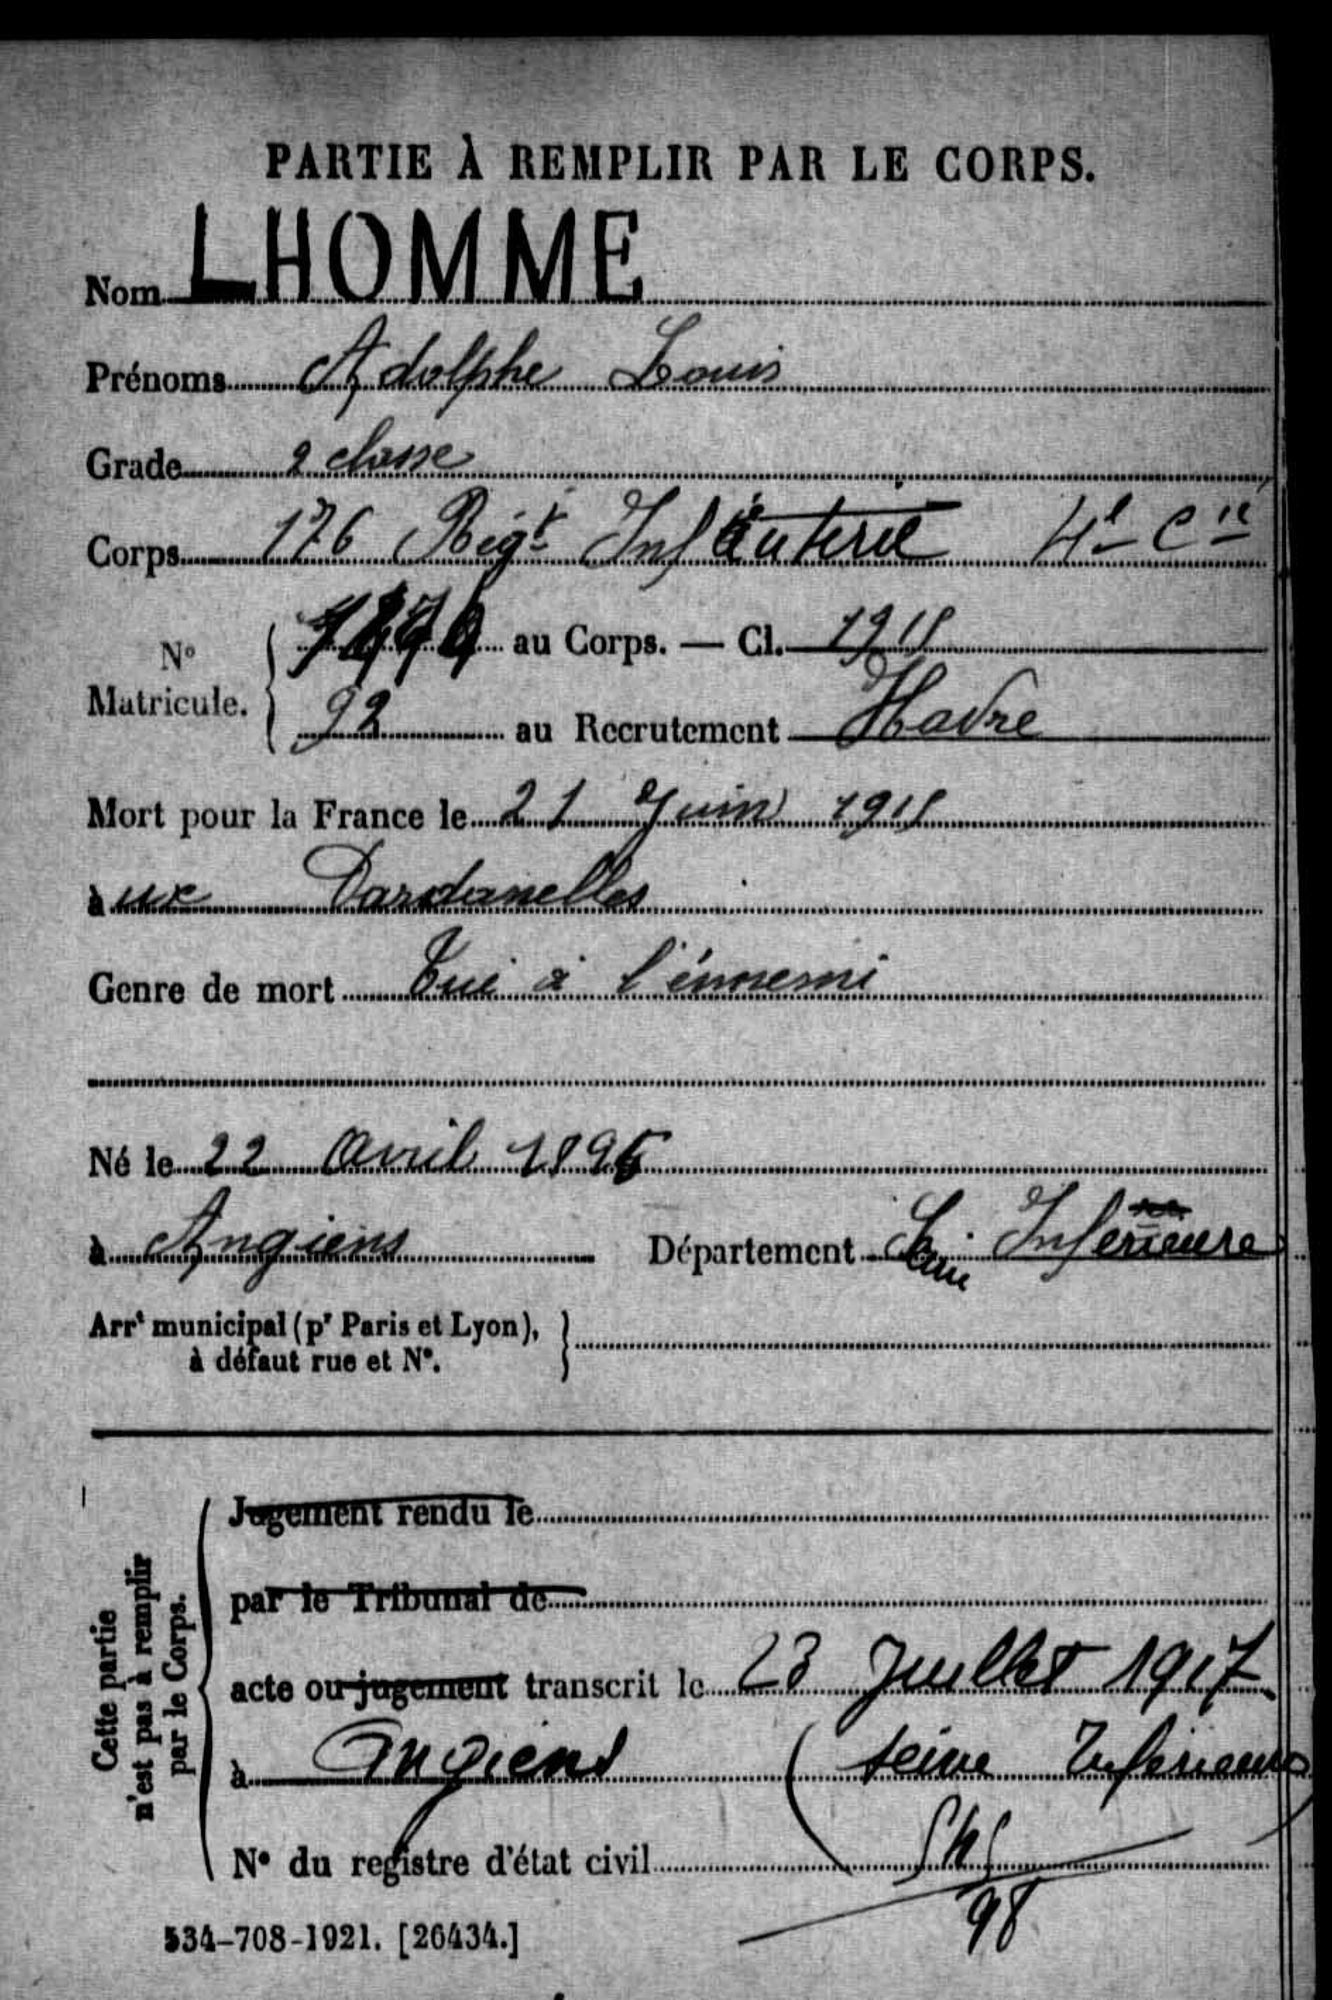 PARTIE À REMPLIR PAR LE CORPS.
Nom LHOMME
Prénoms Adolphe Louis
Grade 2 classe
Corps 176 Régt Infanterie 4e Cie
No Matricule. au Corps. — Cl. 1915
92 au Recrutement Havre
Mort pour la France le 21 Juin 1915
à ux Dardanelles
Genre de mort Tué à l'énnemi
Né le 22 Avril 1895
à Angiens Département Seine Inférieure
Arrt municipal (pr Paris et Lyon),
à défaut rue et No.
Cette partie
n'est pas à remplir
par le Corps.
Jugement rendu le
par le Tribunal de
acte ou jugement transcrit le 23 Juillet 1917
à Angiens (Seine Inférieure)
No du registre d'état civil
98
534-708-1921. [26434.]